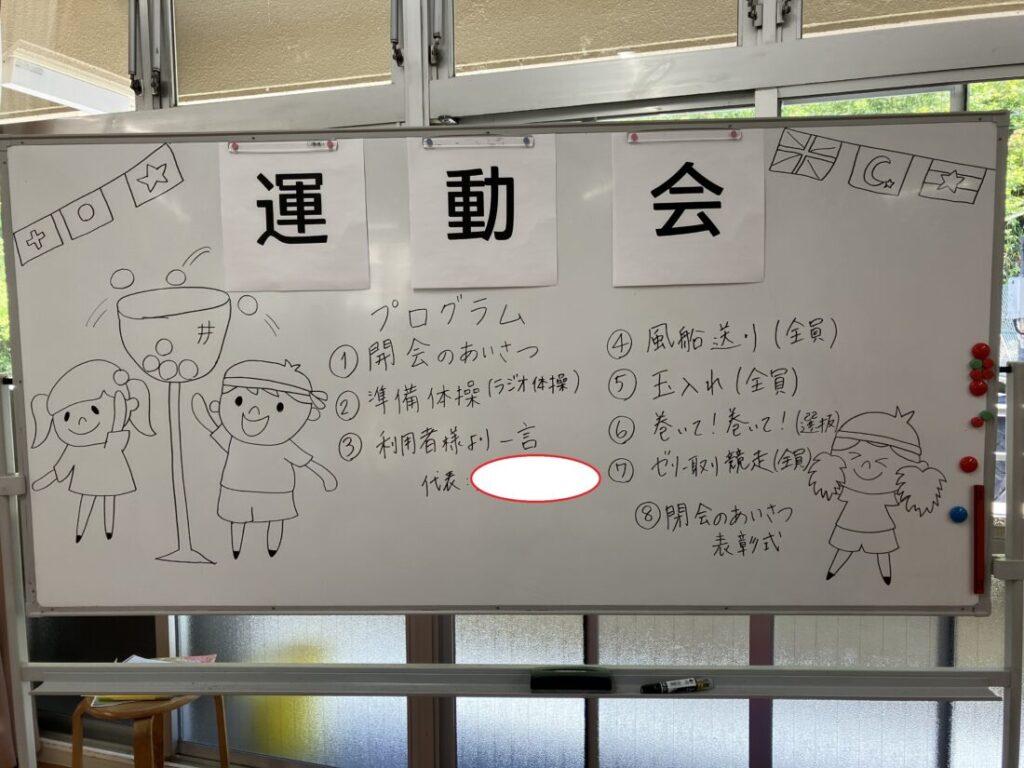 運動会
プログラム
①開会のあいさつ
②準備体操(ラジオ体操)
③利用者様より一言
代表:
④風船送り(全員)
⑤玉入れ(全員)
⑥巻いて!巻いて!(選抜)
⑦ゼリー取り競走(全員)
⑧閉会のあいさつ
表彰式